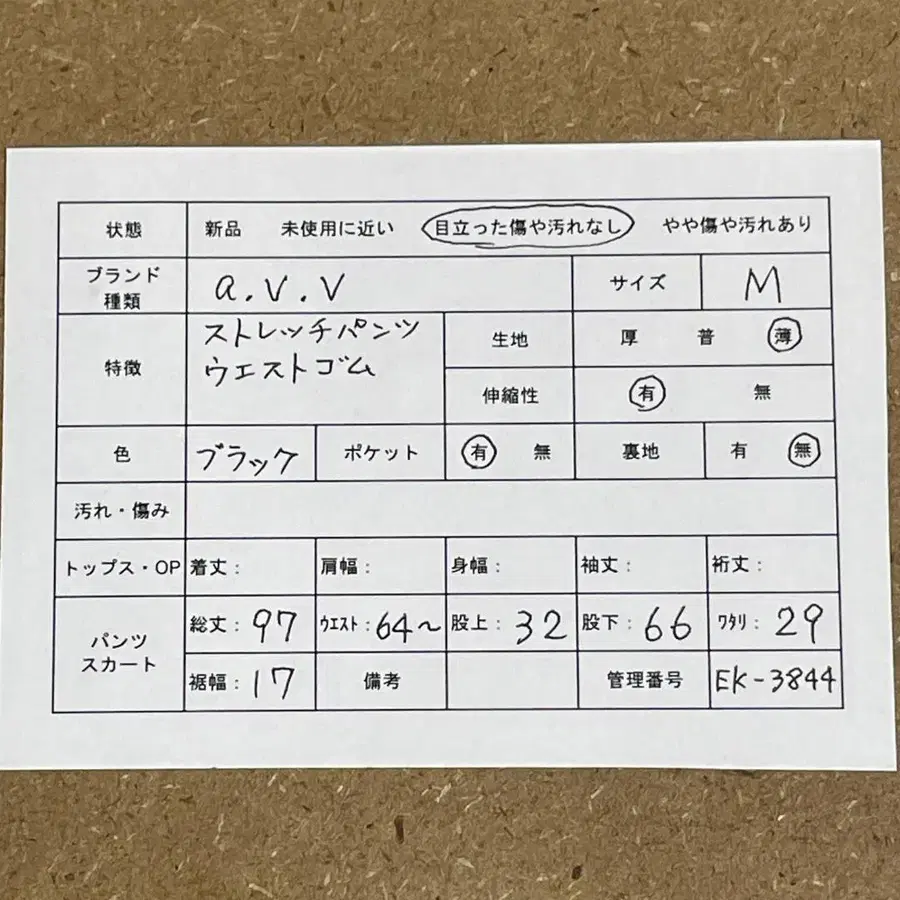 状態 新品 未使用に近い 目立った傷や汚れなし やや傷や汚れあり
ブランド 種類 a.v.v サイズ M
特徴 ストレッチパンツ
ウエストゴム
生地 厚 普 薄
伸縮性 有 無
色 ブラック ポケット 有 無 裏地 有 無
汚れ・傷み
トップス・OP 着丈: 肩幅: 身幅: 袖丈: 裄丈:
パンツ スカート 総丈: 97 ウエスト: 64〜 股上: 32 股下: 66 ワタリ: 29
裾幅: 17 備考 管理番号 EK-3844